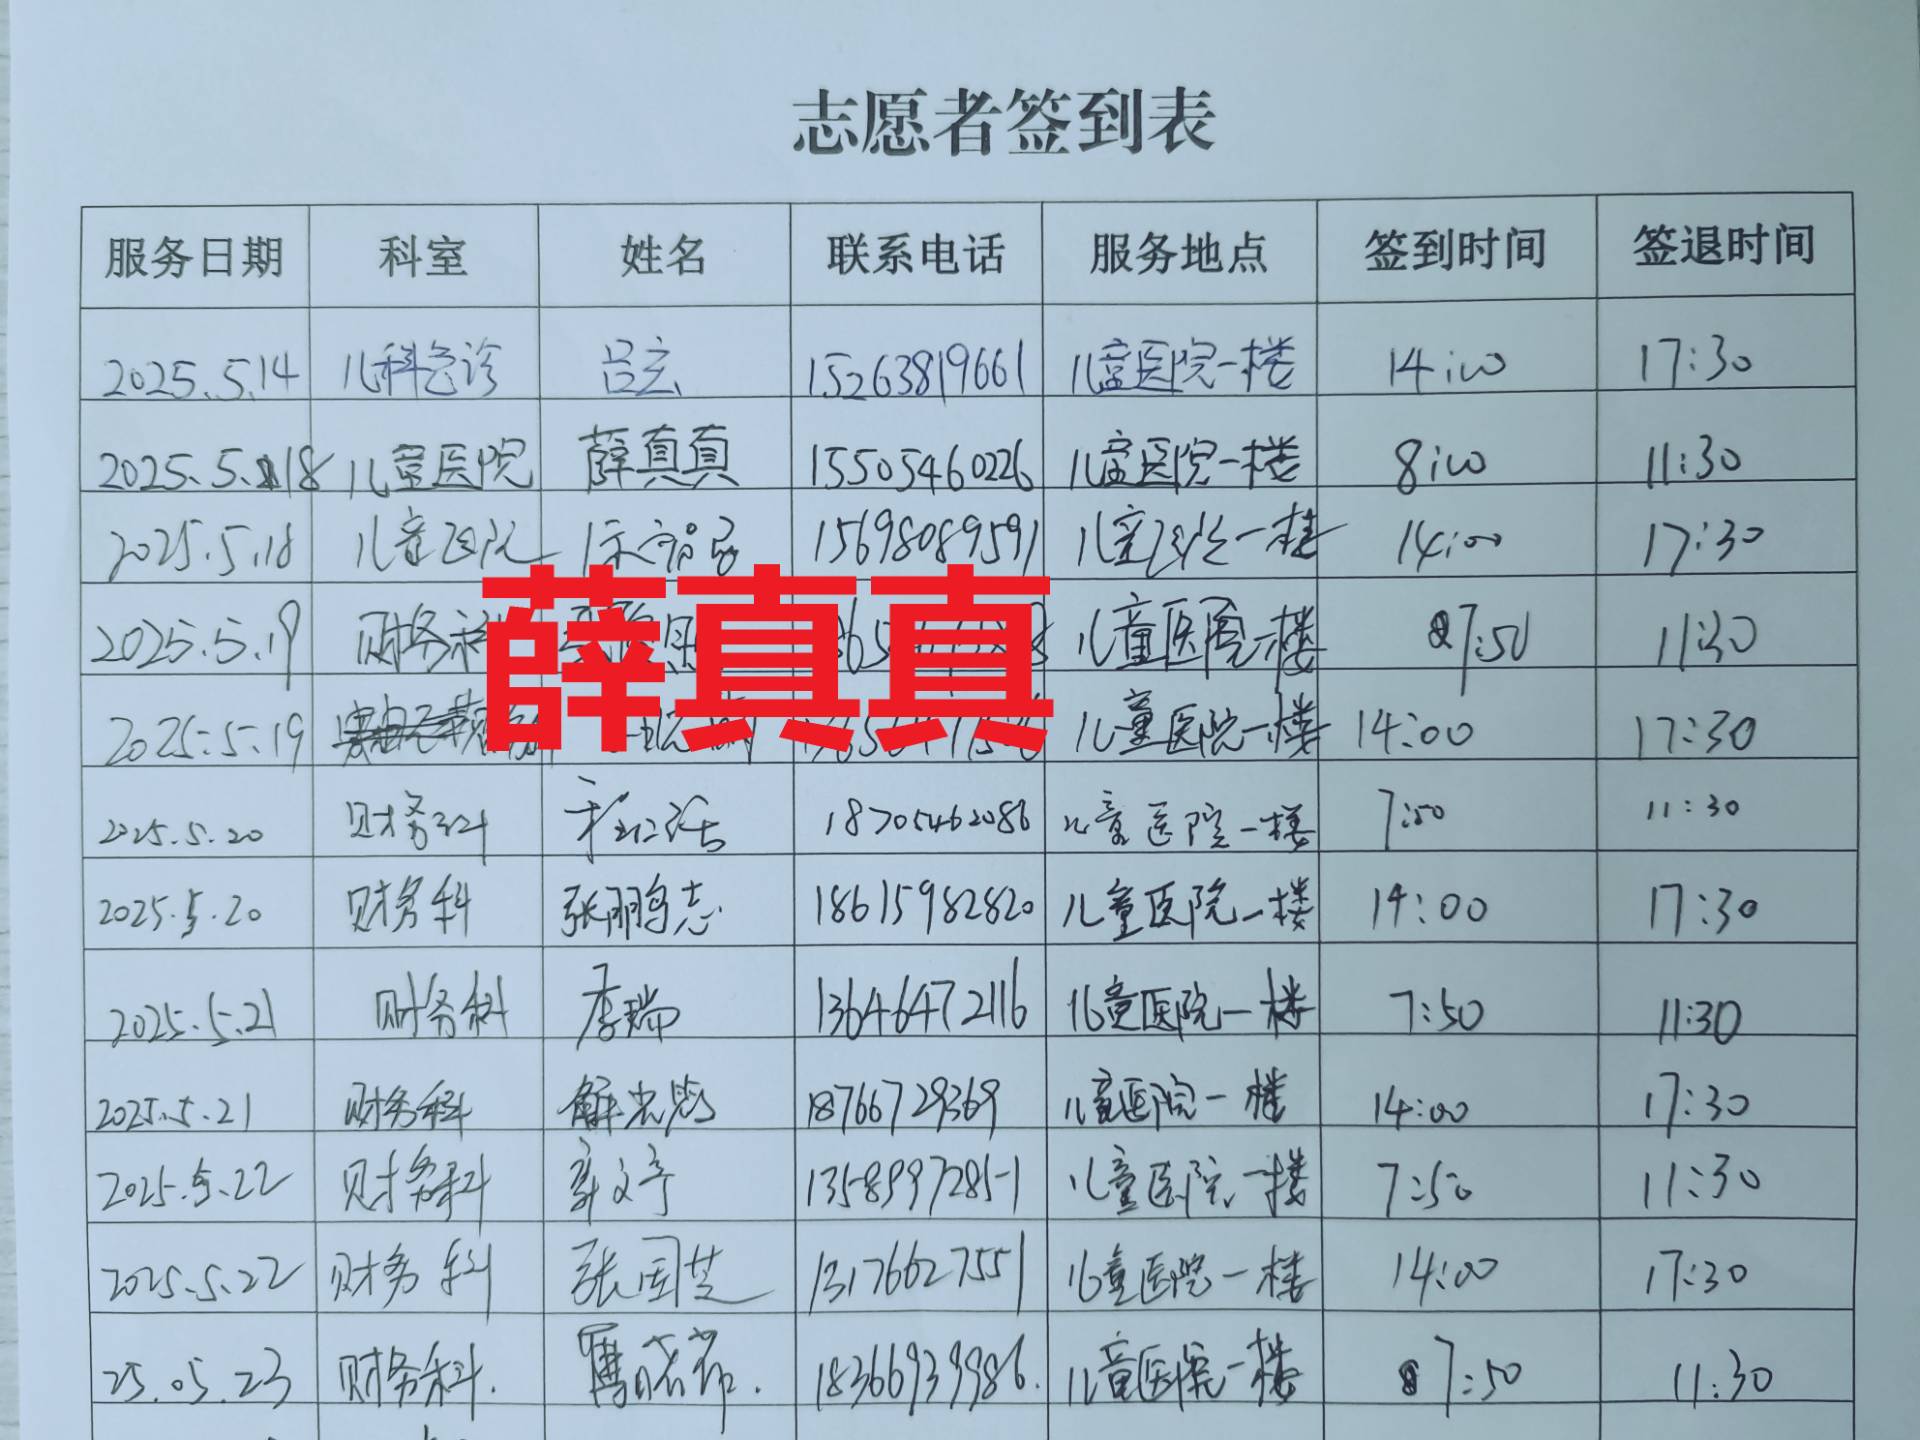 志愿者签到表
服务日期 科室 姓名 联系电话 服务地点 签到时间 签退时间
2025.5.14 儿科急诊 吕玄 15263819661 儿童医院一楼 14:00 17:30
2025.5.18 儿童医院 薛真真 15505460226 儿童医院一楼 8:00 11:30
2025.5.18 儿童医院 15698089591 儿童医院一楼 14:00 17:30
2025.5.19 财务科 儿童医院一楼 7:50 11:30
薛真真
2025.5.19 儿童医院一楼 14:00 17:30
2025.5.20 财务科 18705462086 儿童医院一楼 7:50 11:30
2025.5.20 财务科 张鹏志 18615982820 儿童医院一楼 14:00 17:30
2025.5.21 财务科 李瑞 13646472116 儿童医院一楼 7:50 11:30
2025.5.21 财务科 18766729369 儿童医院一楼 14:00 17:30
2025.5.22 财务科 13589972851 儿童医院一楼 7:50 11:30
2025.5.22 财务科 张国芝 13176627551 儿童医院一楼 14:00 17:30
25.05.23 财务科. 18366939986. 儿童医院一楼 7:50 11:30